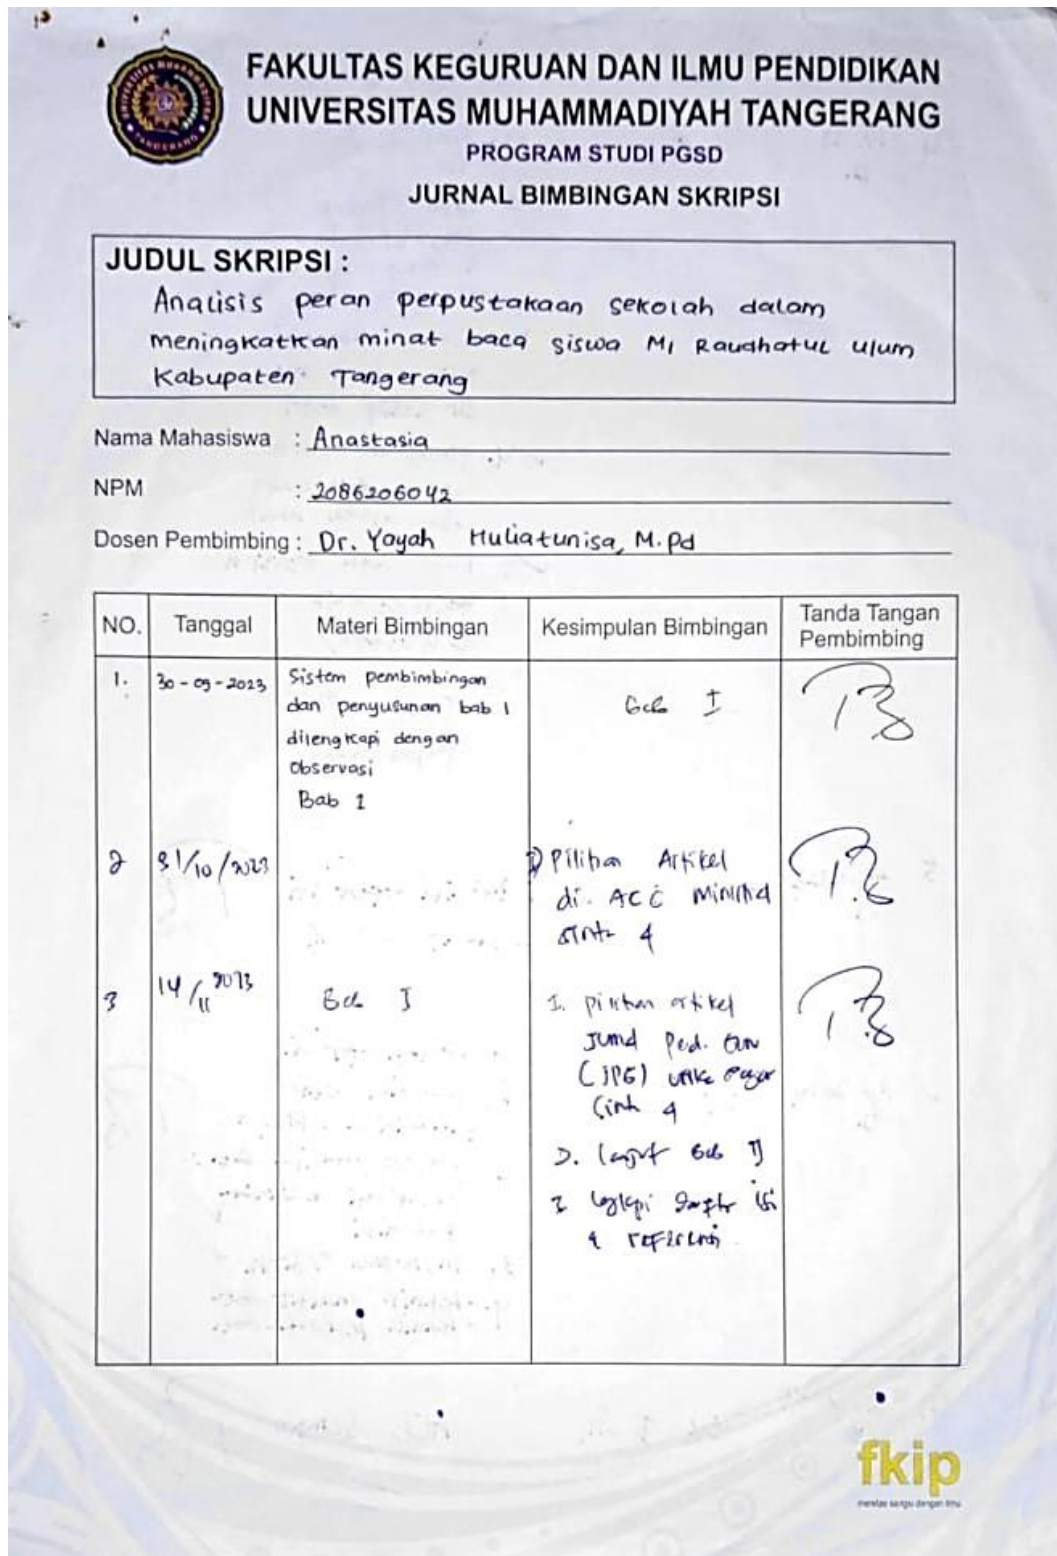 FAKULTAS KEGURUAN DAN ILMU PENDIDIKAN
UNIVERSITAS MUHAMMADIYAH TANGERANG
PROGRAM STUDI PGSD
JURNAL BIMBINGAN SKRIPSI
JUDUL SKRIPSI :
Analisis peran perpustakaan sekolah dalam
meningkatkan minat baca siswa MI Raudhatul Ulum
Kabupaten Tangerang
Nama Mahasiswa : Anastasia
NPM : 2086206042
Dosen Pembimbing : Dr. Yayah Huliatunisa, M.Pd
NO. Tanggal Materi Bimbingan Kesimpulan Bimbingan Tanda Tangan
Pembimbing
1. 30-09-2023 Sistem pembimbingan
dan penyusunan bab 1
dilengkapi dengan
Observasi
Bab 1
Bab I
2 31/10/2023 1) Pilihan Artikel
di ACC
4
3 14/11 2023 Bab I 1. pilihan artikel
Ped.
(JPG)
4
2. lanjut bab II
3 lengkapi daftar isi
& referensi
fkip